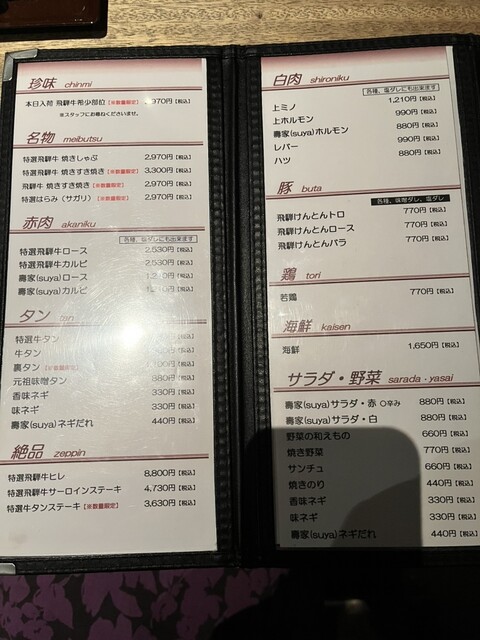 珍味 chinmi
本日入荷 飛騨牛希少部位【※数量限定】 970円【税込】
※スタッフにお尋ねくださいませ。
名物 meibutsu
特選飛騨牛 焼きしゃぶ 2,970円【税込】
特選飛騨牛 焼きすき焼き【※数量限定】 3,300円【税込】
飛騨牛 焼きすき焼き【※数量限定】 2,970円【税込】
特選はらみ (サガリ)【※数量限定】 2,970円【税込】
赤肉 akaniku
各種、塩ダレにも出来ます
特選飛騨牛ロース 2,530円【税込】
特選飛騨牛カルビ 2,530円【税込】
壽家(suya)ロース 【税込】
壽家(suya)カルビ 【税込】
タン tan
特選牛タン
牛タン
裏タン【※数量限定】
元祖味噌タン 880円
香味ネギ 330円【税込】
味ネギ 330円【税込】
壽家(suya)ネギだれ 440円【税込】
絶品 zeppin
特選飛騨牛ヒレ 8,800円【税込】
特選飛騨牛サーロインステーキ 4,730円【税込】
特選牛タンステーキ【※数量限定】 3,630円【税込】
白肉 shironiku
各種、塩ダレにも出来ます
上ミノ 1,210円【税込】
上ホルモン 990円【税込】
壽家(suya)ホルモン 880円【税込】
レバー 990円【税込】
ハツ 880円【税込】
豚 buta
各種、味噌ダレ、塩ダレ
飛騨けんとんトロ 770円【税込】
飛騨けんとんロース 770円【税込】
飛騨けんとんバラ 770円【税込】
鶏 tori
若鶏 770円【税込】
海鮮 kaisen
海鮮 1,650円【税込】
サラダ・野菜 sarada・yasai
壽家(suya)サラダ・赤 〇辛み 880円【税込】
壽家(suya)サラダ・白 880円【税込】
野菜の和えもの 660円【税込】
焼き野菜 770円【税込】
サンチュ 660円【税込】
焼きのり 440円【税込】
香味ネギ 330円【税込】
味ネギ 330円【税込】
壽家(suya)ネギだれ 440円【税込】